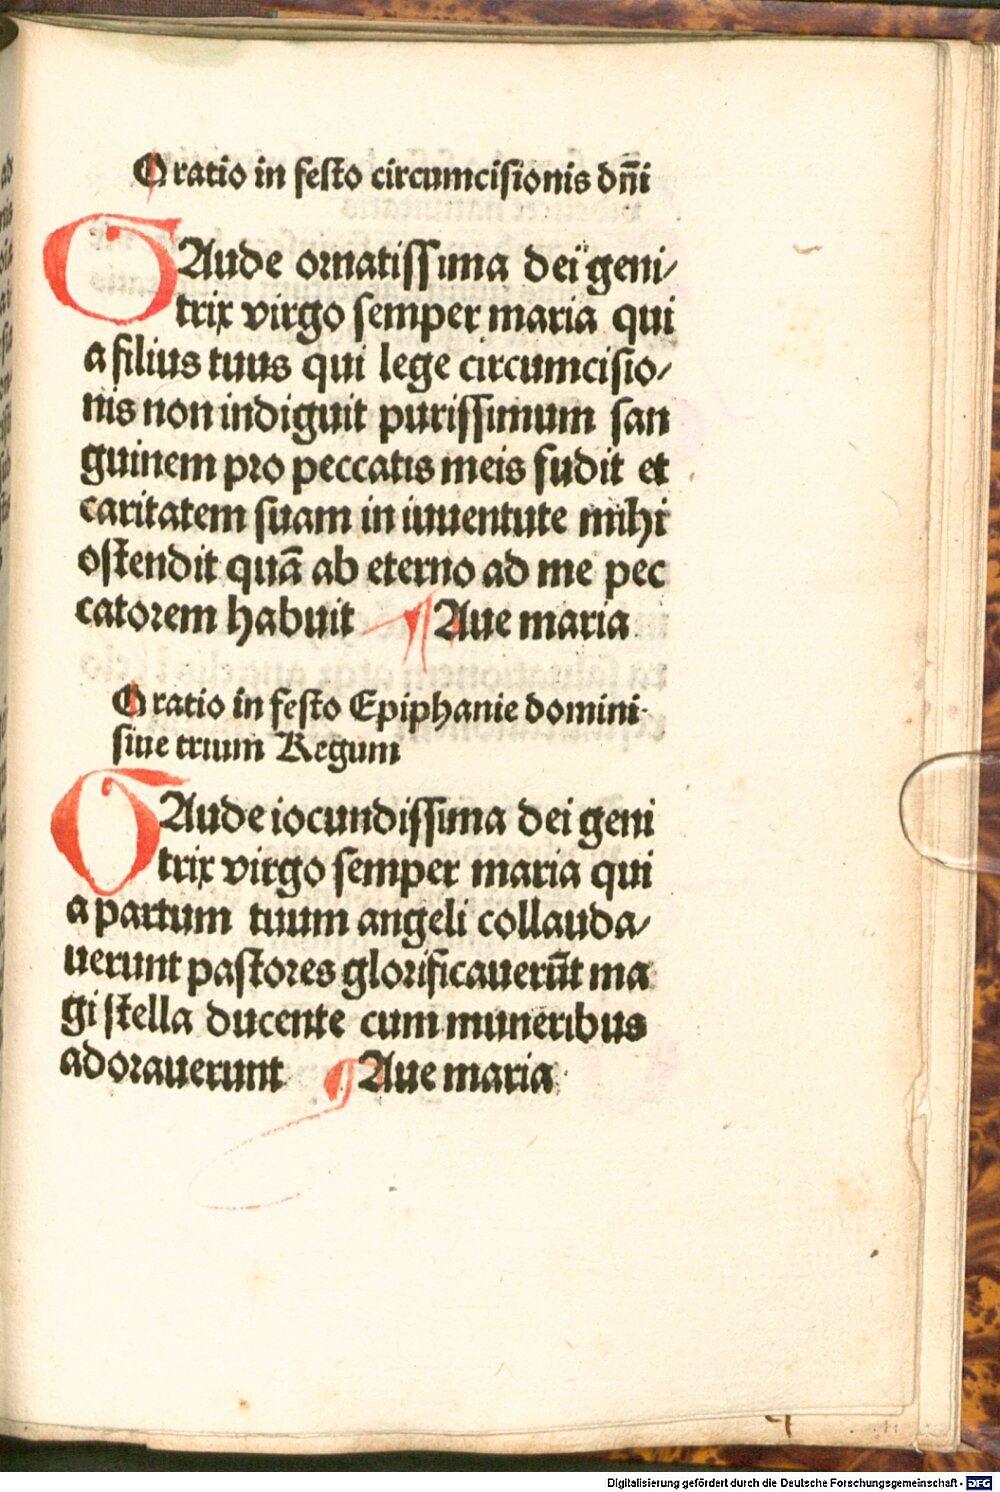 Oratio in festo circumcisionis dn̄i
GAude ornatissima dei geni/
trix virgo semper maria qui
a filius tuus qui lege circumcisio/
nis non indiguit purissimum san
guinem pro peccatis meis fudit et
caritatem suam in iuuentute mihi
ostendit quā ab eterno ad me pec
catorem habuit ¶ Aue maria
Oratio in festo Epiphanie domini
siue trium Regum
GAude iocundissima dei geni
trix virgo semper maria qui
a partum tuum angeli collauda/
uerunt pastores glorificauerūt ma
gi stella ducente cum muneribus
adorauerunt ¶ Aue maria
Digitalisierung gefördert durch die Deutsche Forschungsgemeinschaft - DFG